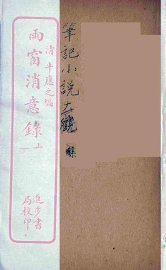 筆記小説大觀
清牛應之編
雨窗消意錄 上
進步書
局校印